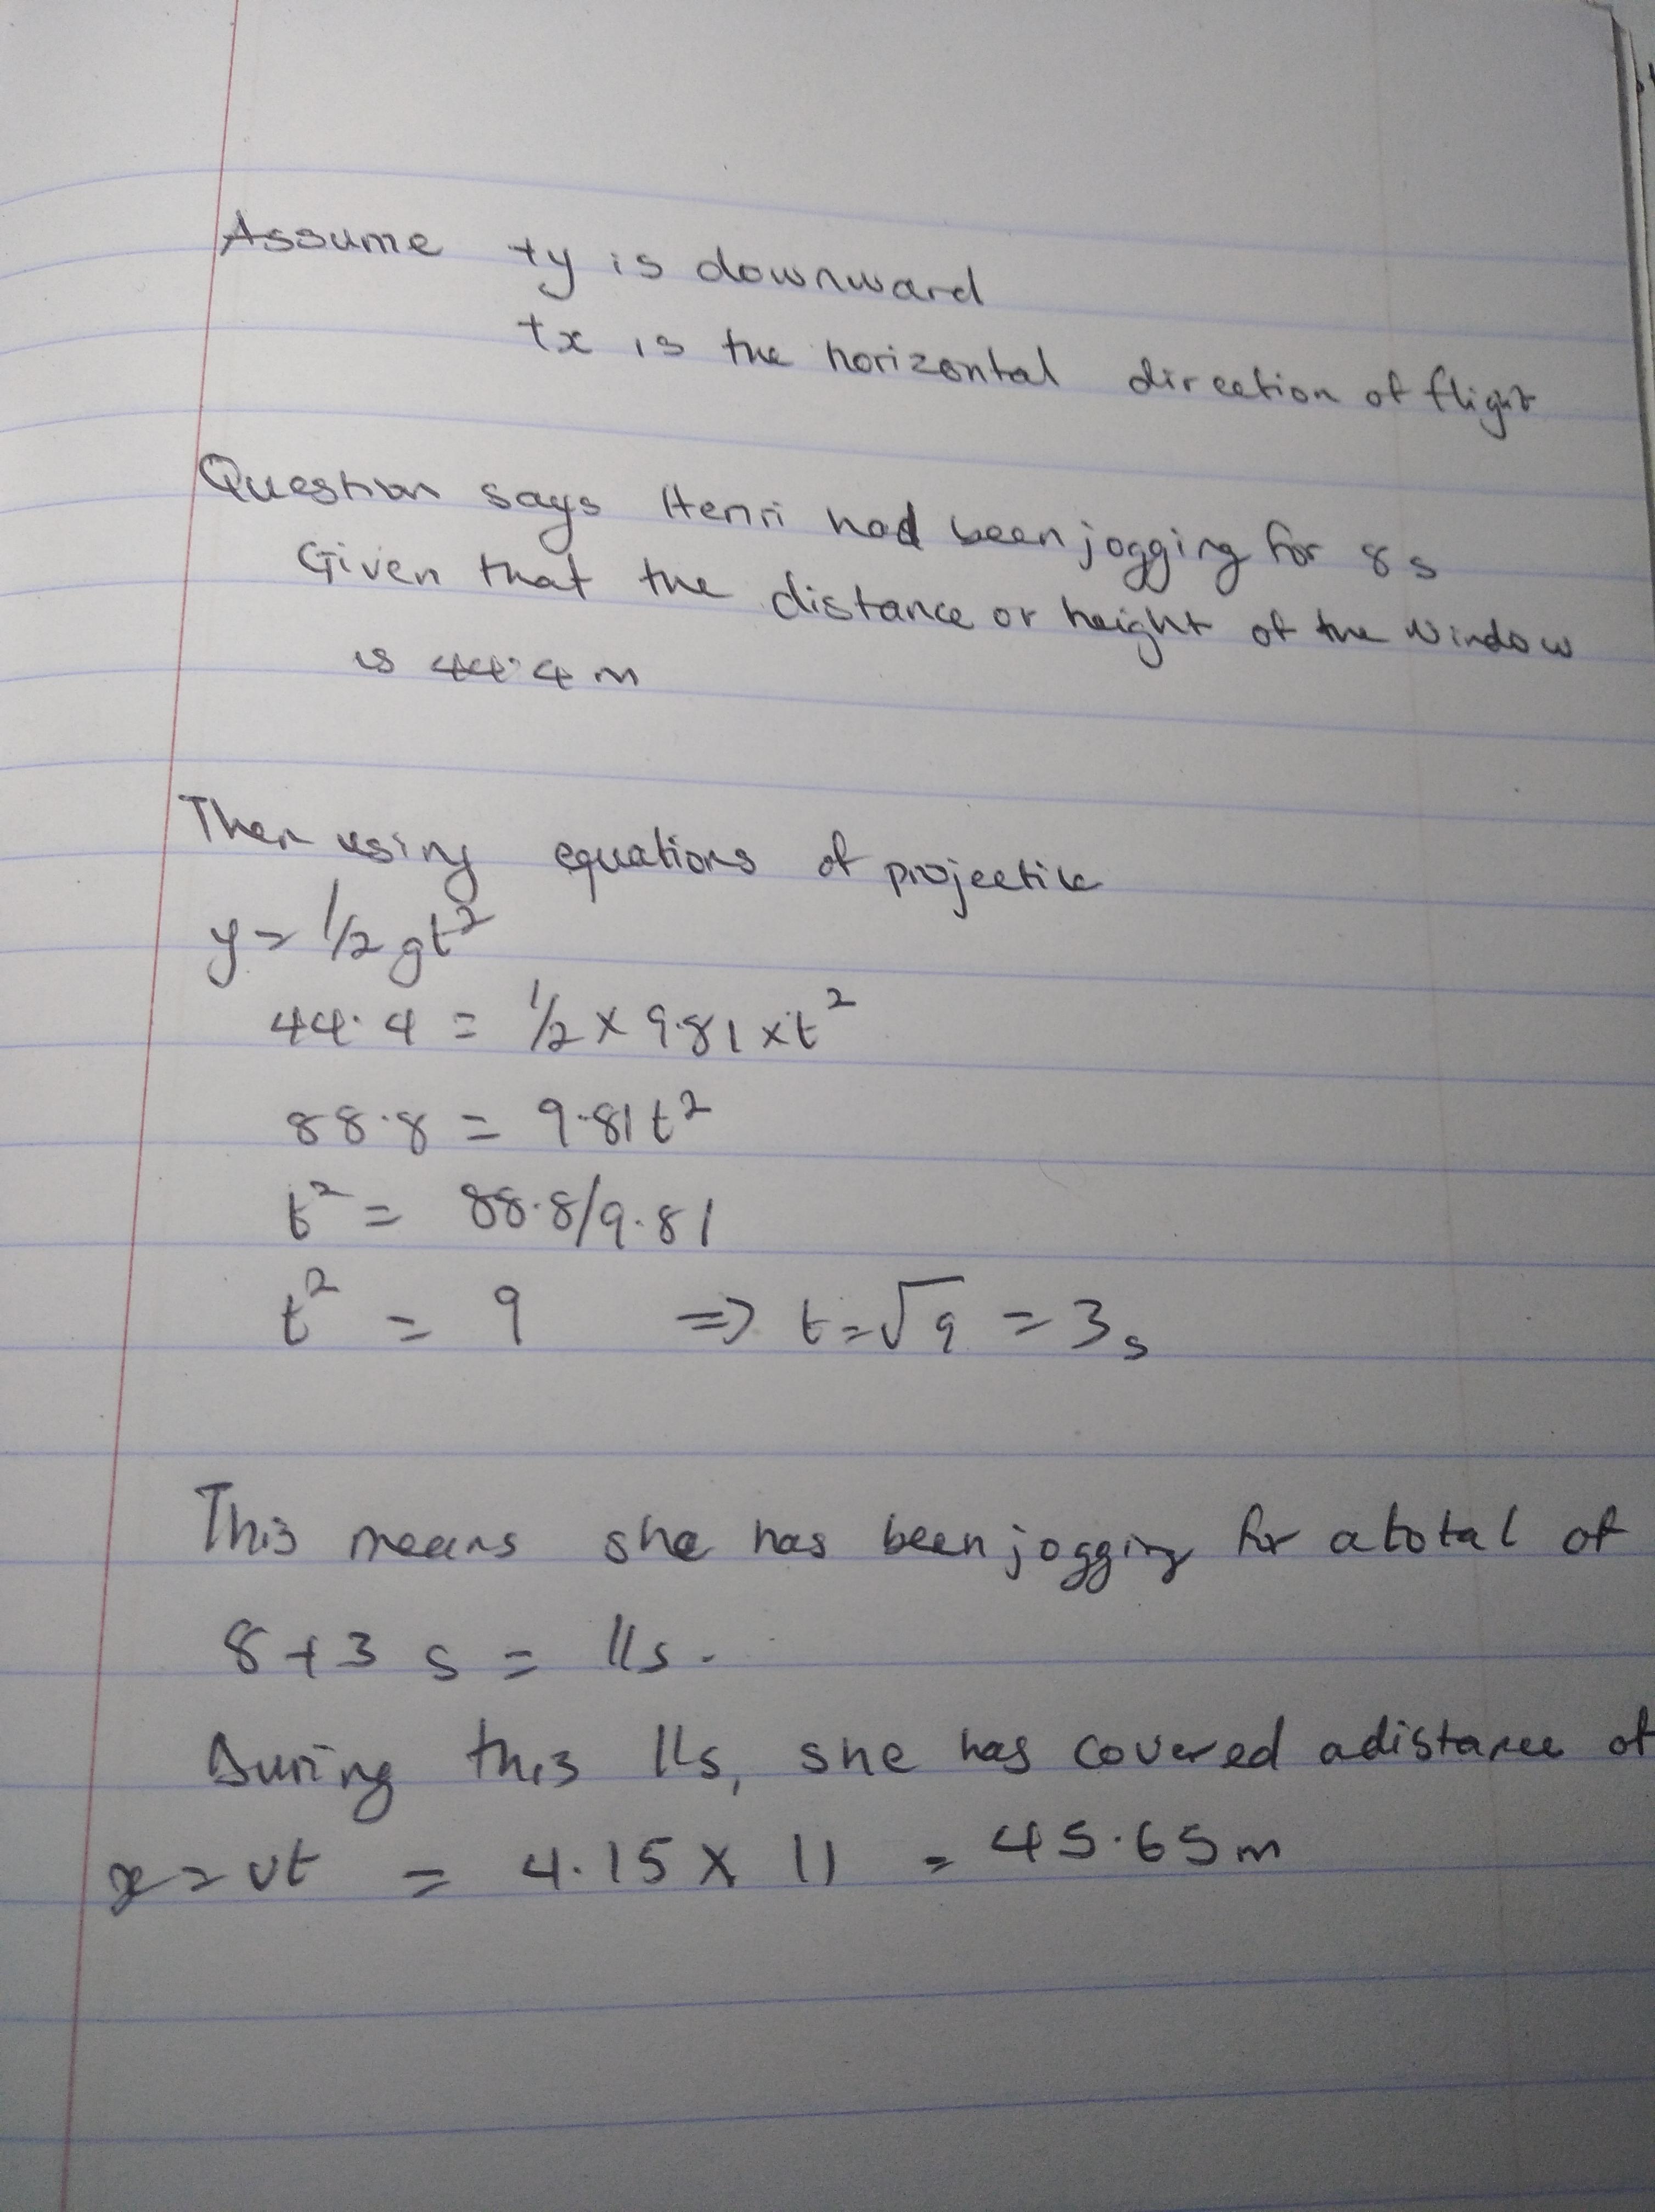 Assume +y is downward
+x is the horizontal direction of flight
Question says Henri had been jogging for 8s
Given that the distance or height of the window
is 44.4m
Then using equations of projectile
y = 1/2 gt²
44.4 = 1/2 x 9.81 x t²
88.8 = 9.81t²
t² = 88.8/9.81
t² = 9 => t = √9 = 3s
This means she has been jogging for a total of
8+3 s = 11s.
During this 11s, she has covered a distance of
x = vt = 4.15 x 11 = 45.65m